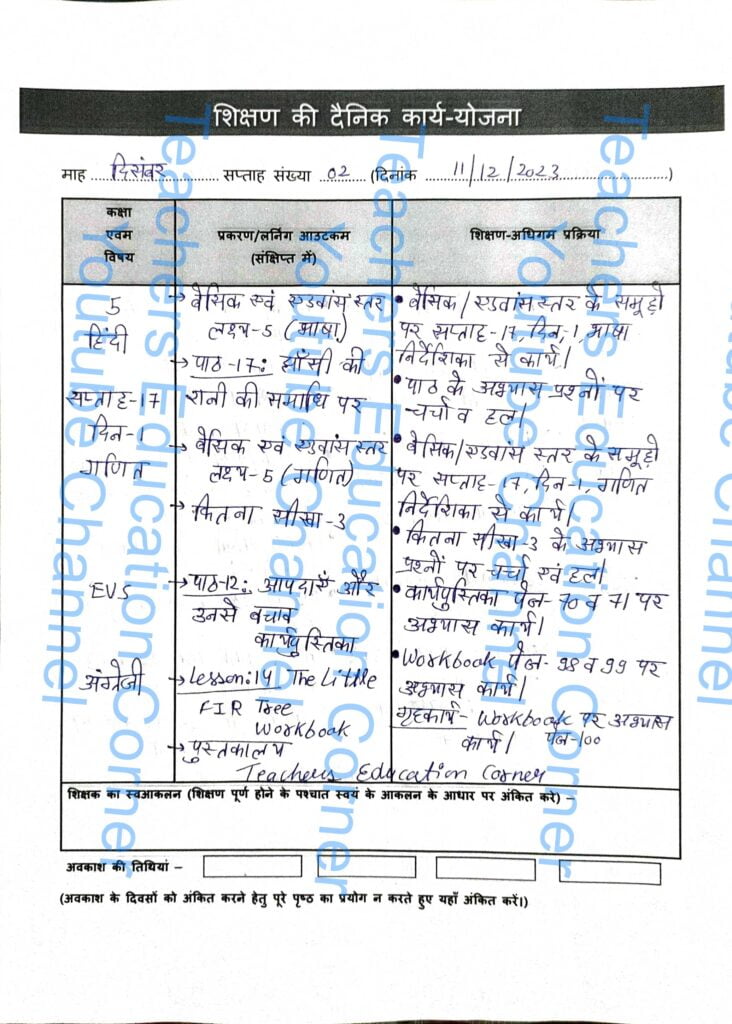 शिक्षण की दैनिक कार्य-योजना
माह दिसंबर सप्ताह संख्या 02 (दिनांक 11/12/2023)
कक्षा
एवम
विषय
प्रकरण/लर्निग आउटकम
(संक्षिप्त में)
शिक्षण-अधिगम प्रक्रिया
5
हिंदी
सप्ताह-17
दिन-1
गणित
EVS
अंग्रेजी
→ वेसिक एवं एडवांस स्तर
लक्ष्य-5 (भाषा)
→ पाठ-17: झाँसी की
रानी की समाधि पर
→ वेसिक एवं एडवांस स्तर
लक्ष्य-5 (गणित)
→ कितना सीखा-3
→ पाठ-12: आपदाएँ और
उनसे बचाव
कार्यपुस्तिका
→ Lesson:14 The Little
FIR Tree
Workbook
→ पुस्तकालय
• वेसिक/एडवांस स्तर के समूहो
पर सप्ताह-17, दिन-1, भाषा
निर्देशिका से कार्य।
• पाठ के अभ्यास प्रश्नों पर
चर्चा व हल।
• वेसिक/एडवांस स्तर के समूहो
पर सप्ताह-17, दिन-1, गणित
निर्देशिका से कार्य।
• कितना सीखा-3 के अभ्यास
प्रश्नों पर चर्चा एवं हल।
• कार्यपुस्तिका पेज-70 व 71 पर
अभ्यास कार्य।
• Workbook पेज-98 व 99 पर
अभ्यास कार्य।
गृहकार्य- Workbook पर अभ्यास
कार्य। पेज-100
Teachers Education Corner
शिक्षक का स्वआकलन (शिक्षण पूर्ण होने के पश्चात स्वयं के आकलन के आधार पर अंकित करे) –
अवकाश की तिथियां –
(अवकाश के दिवसों को अंकित करने हेतु पूरे पृष्ठ का प्रयोग न करते हुए यहाँ अंकित करें।)
Teachers Education Corner
Youtube Channel
Teachers Education Corner
Youtube Channel
Teachers Education Corner
Youtube Channel